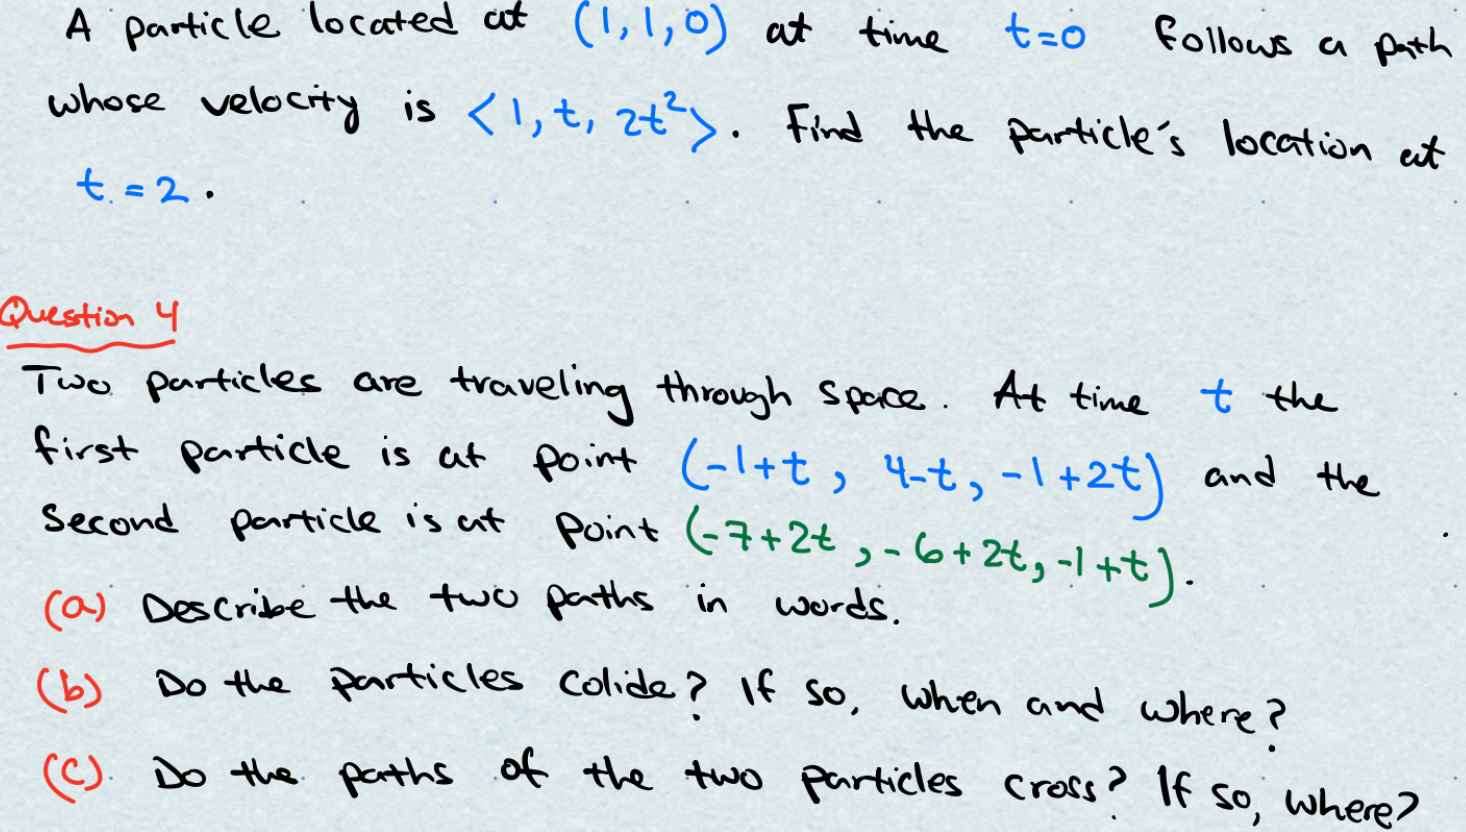 A particle located at (1,1,0) at time t=0 follows a path
whose velocity is <1, t, 2t²>. Find the particle's location at
t=2.
Question 4
Two particles are traveling through space. At time t the
first particle is at point (-1+t, 4-t, -1+2t) and the
second particle is at point (-7+2t, -6+2t, -1+t).
(a) Describe the two paths in words.
(b) Do the particles colide? If so, when and where?
(c) Do the paths of the two particles cross? If so, where?